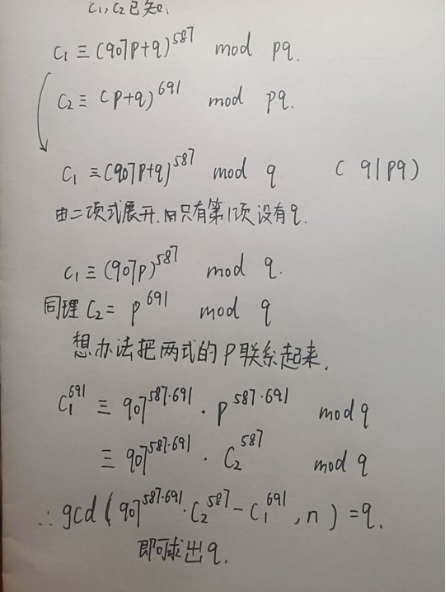 C₁, C₂已知.
C₁ ≡ (907p+q)^587 mod pq.
C₂ ≡ (p+q)^691 mod pq.
C₁ ≡ (907p+q)^587 mod q ( q|pq)
由二项式展开.因只有第1项没有q.
C₁ ≡ (907p)^587 mod q.
同理 C₂ = p^691 mod q
想办法把两式的p联系起来.
C₁^691 ≡ 907^587·691 · p^587·691 mod q
≡ 907^587·691 · C₂^587 mod q
∴ gcd(907^587·691 · C₂^587 - C₁^691, n) = q.
即可求出q.